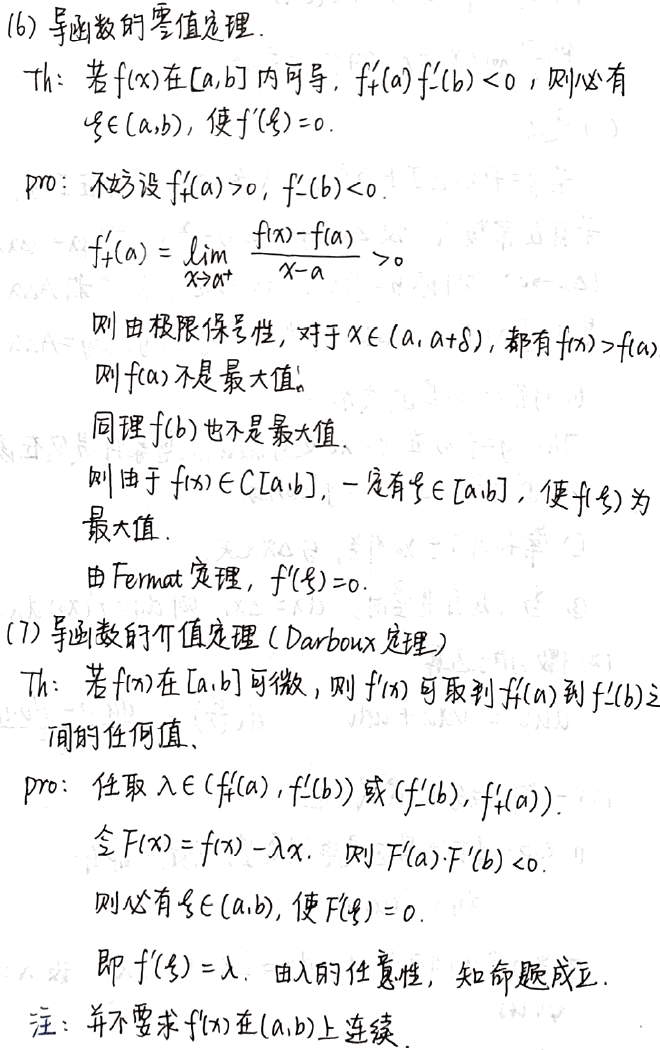 (6) 导函数的零值定理.
Th: 若f(x)在[a,b]内可导, f'₊(a)f'₋(b)<0, 则必有
ξ∈(a,b), 使f'(ξ)=0.
pro: 不妨设f'₊(a)>0, f'₋(b)<0.
f'₊(a) = lim_{x→a⁺} (f(x)-f(a))/(x-a) >0
则由极限保号性, 对于x∈(a,a+δ), 都有f(x)>f(a)
则f(a)不是最大值.
同理f(b)也不是最大值.
则由于f(x)∈C[a,b], 一定有ξ∈[a,b], 使f(ξ)为
最大值.
由Fermat定理, f'(ξ)=0.
(7) 导函数的介值定理(Darboux定理)
Th: 若f(x)在[a,b]可微, 则f'(x)可取到f'₊(a)到f'₋(b)之
间的任何值、
pro: 任取λ∈(f'₊(a),f'₋(b))或(f'₋(b),f'₊(a)).
令F(x)=f(x)-λx. 则F'(a)·F'(b)<0.
则必有ξ∈(a,b), 使F'(ξ)=0.
即f'(ξ)=λ. 由λ的任意性, 知命题成立.
注: 并不要求f'(x)在(a,b)上连续.